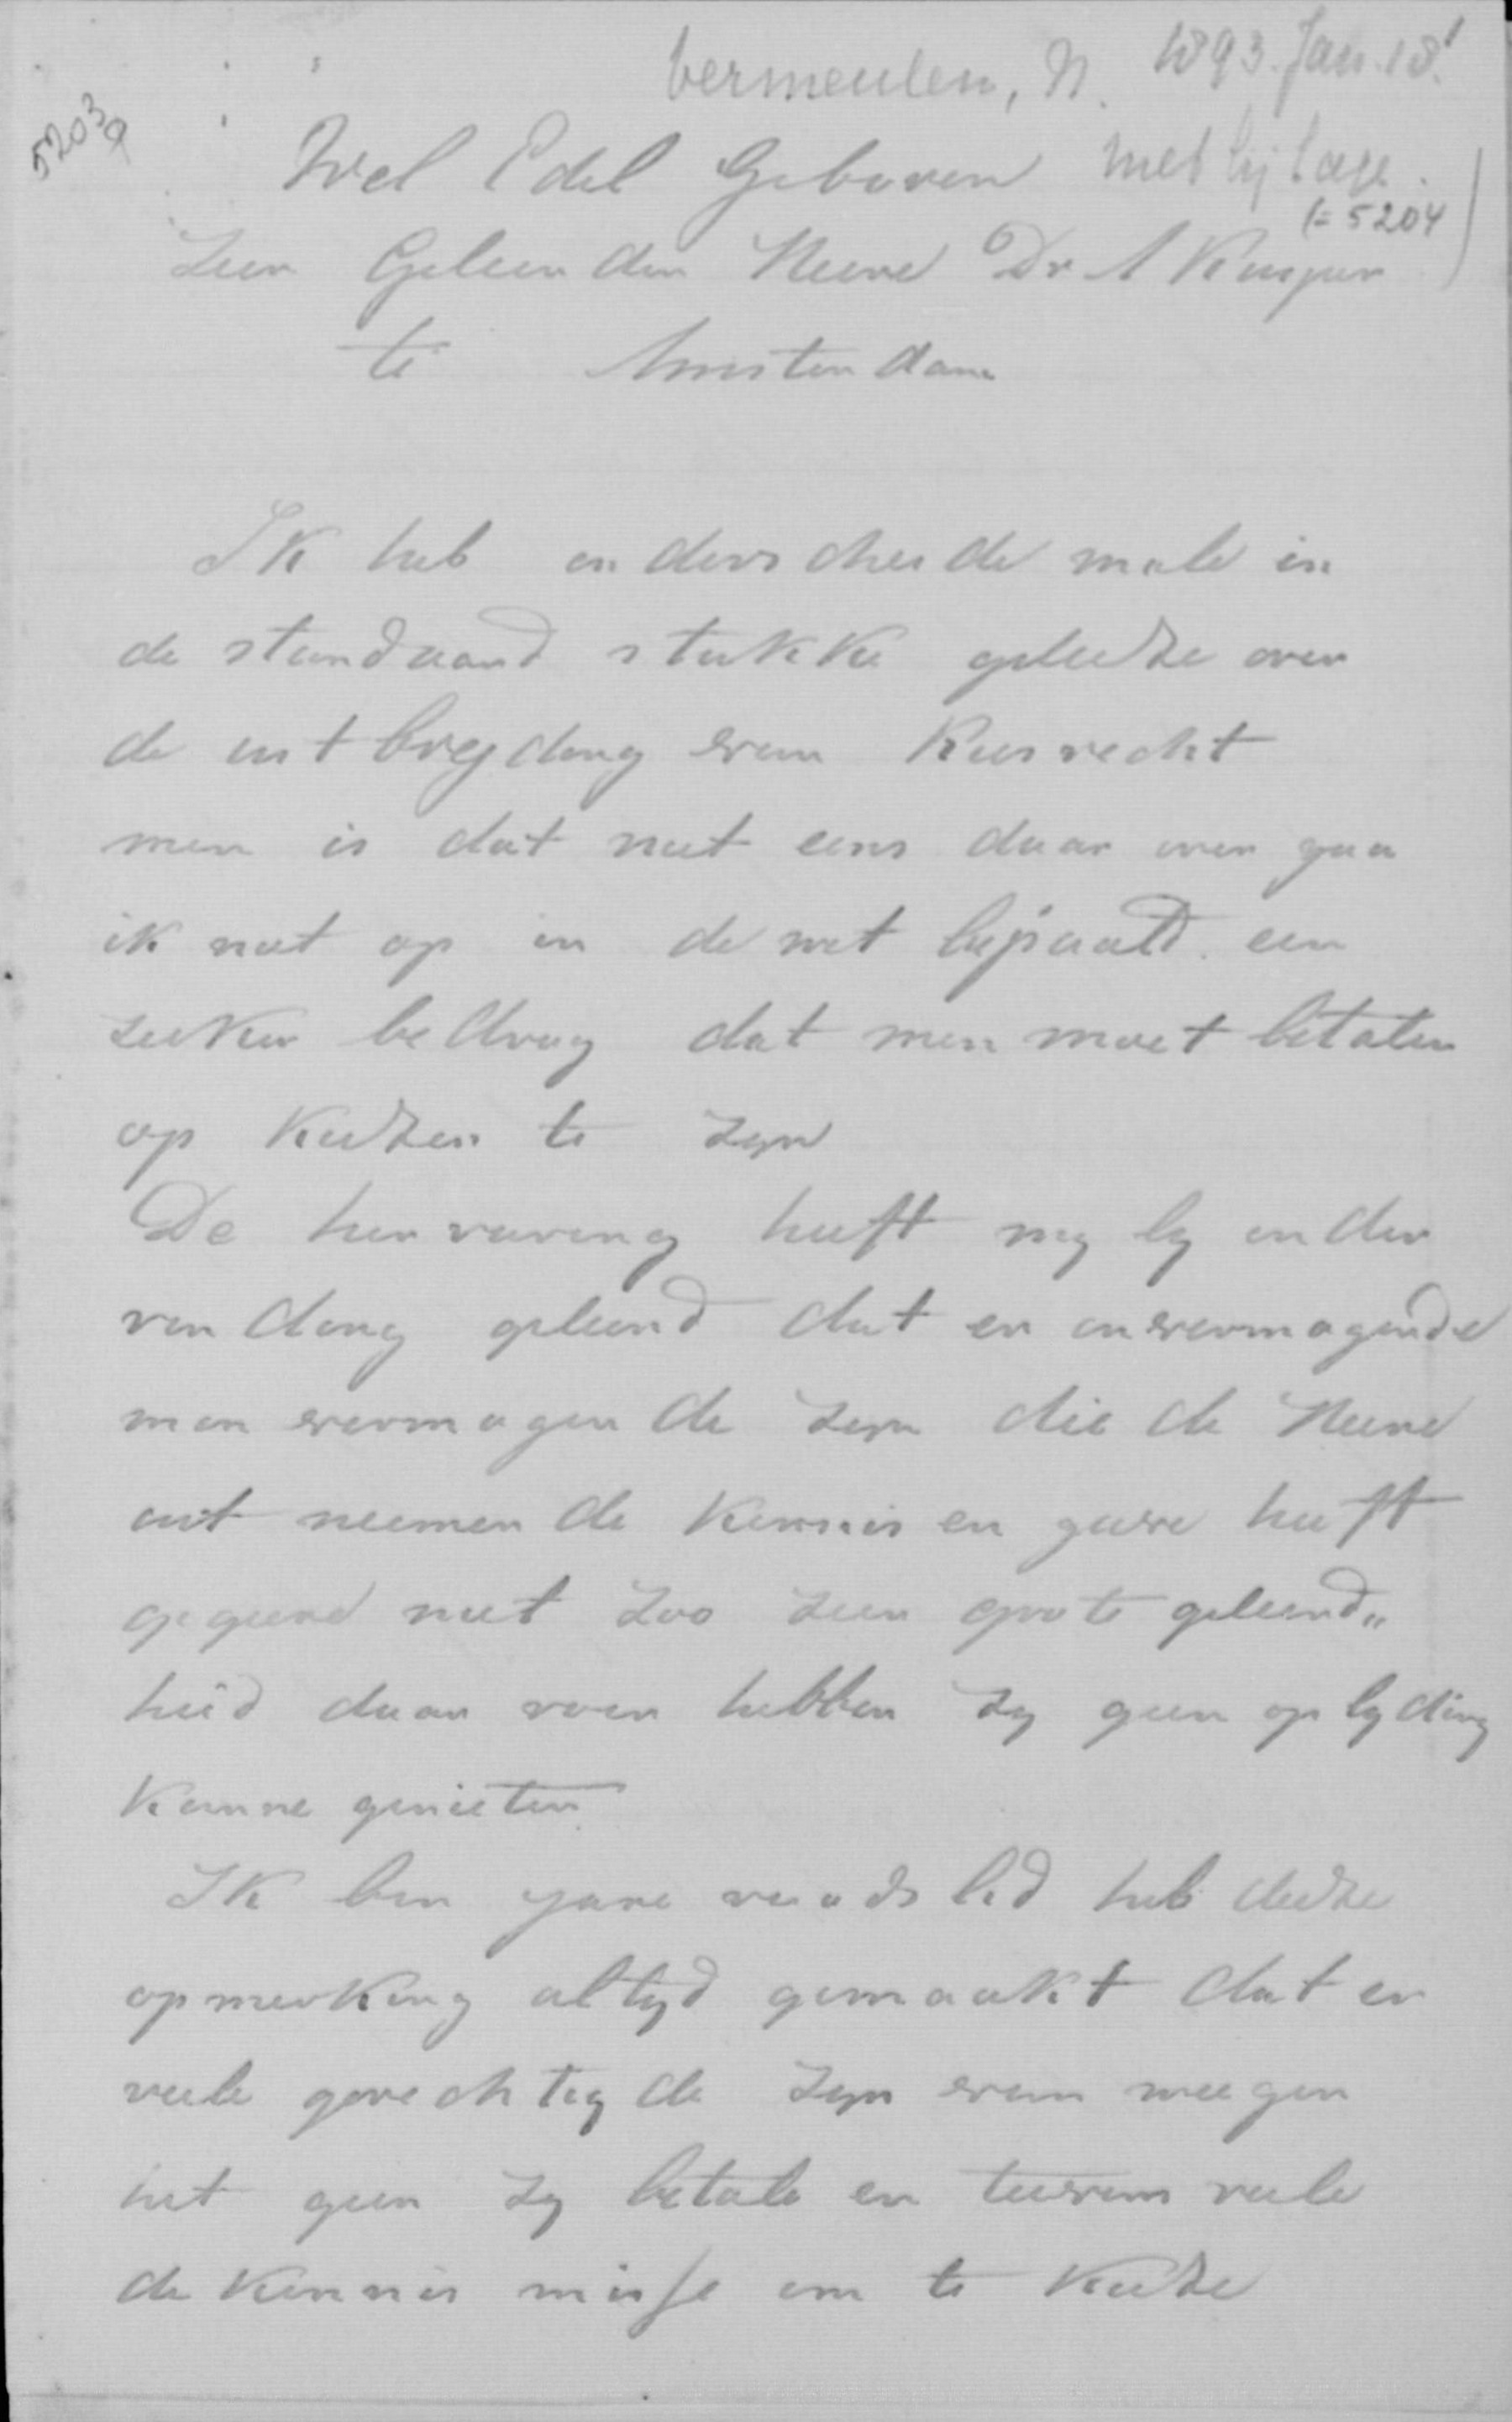 Vermeulen, N. 1893. Jan. 18.
5203a
Wel Edel Geboren met bijlage.
(= 5204)
Zeer Geleerden Heere Dr A Kuyper
te Amsterdam
Ik heb onderscheide male in
de standaard stukke geleeze over
de uitbreyding van Kiesrecht
men is dat niet eens daar over gaa
ik niet op in de wet bepaald een
zeeker bedrag dat men moet betalen
op Kiezen te zyn
De hervaring heeft my by onder
vinding geleerd dat er onvermogende
man vermogende zyn die de Heere
uitneemende Kennis en gave heeft
gegeeve niet zoo zeer groote geleerd„
heid daar voor hebben zy geen oplyding
Kunne genieten
Ik ben jare raads lid heb deeze
opmerking altyd gemaakt dat er
veele gerechtigde zyn van weegen
het geen zy betale en teevens veele
de Kennis misse om te Kieze